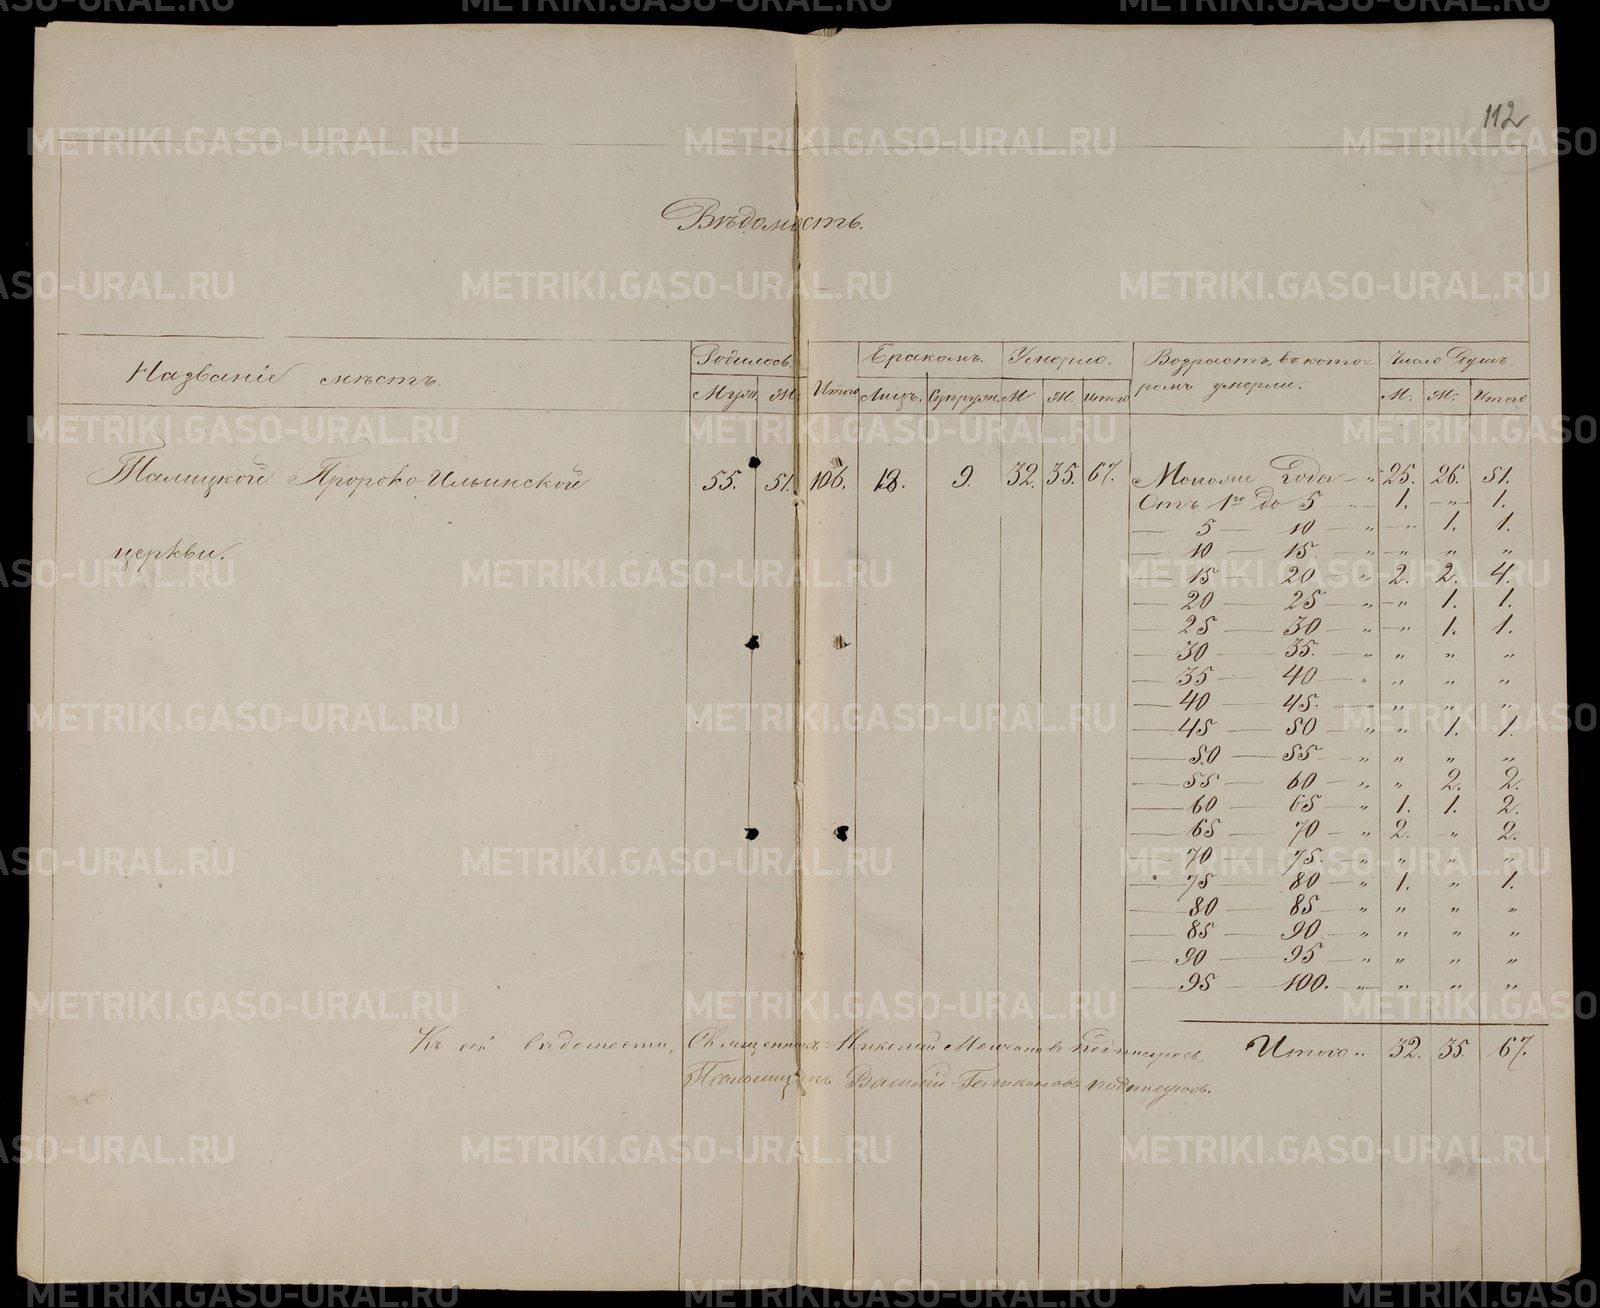 112
Вѣдомость.
Названіе мѣстъ.
Родилось. Бракомъ. Умерло. Возрастъ, въ кото=
ромъ умерли. Число душъ.
Муж. Ж. Итого Лицъ. Супруж. М. Ж. Итого М. Ж. Итого
Талицкой Пророко-Ильинской 55. 51. 106. 18. 9. 32. 35. 67. Моложе Года — „ 25. 26. 51.
церкви.
Отъ 1го до 5 — „ 1. — „ — 1.
— 5 — 10 — „ — „ 1. 1.
— 10 — 15. — „ — „ „ „
— 15 — 20 — „ 2. 2. 4.
— 20 — 25 — „ — „ 1. 1.
— 25 — 30 — „ — „ 1. 1.
— 30 — 35. — „ „ „ „
— 35 — 40 — „ „ „ „
— 40 — 45. — „ „ „ „
— 45 — 50 — „ „ 1. 1.
— 50 — 55 — „ „ „ „
— 55 — 60 — „ „ 2. 2.
— 60 — 65 — „ 1. 1. 2.
— 65 — 70 — „ 2. — „ 2.
— 70 — 75. — „ „ „ „
— 75 — 80 — „ 1. „ 1.
— 80 — 85 — „ „ „ „
— 85 — 90 — „ „ „ „
— 90 — 95 — „ „ „ „
— 95 — 100. — „ „ „ „
Итого „ 32. 35. 67.
Къ сей вѣдомости, Священникъ Николай подписуюсь.
Псаломщикъ Василій подписуюсь.
METRIKI.GASO-URAL.RU